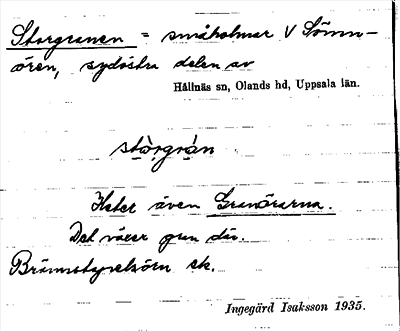 Storgranen = småholmar V Sömm-
ören, sydöstra delen av
Hållnäs sn, Olands hd, Uppsala län.
stòrgràn
Heter även Granörarna.
Det växer gran där.
ek.
Ingegärd Isaksson 1935.